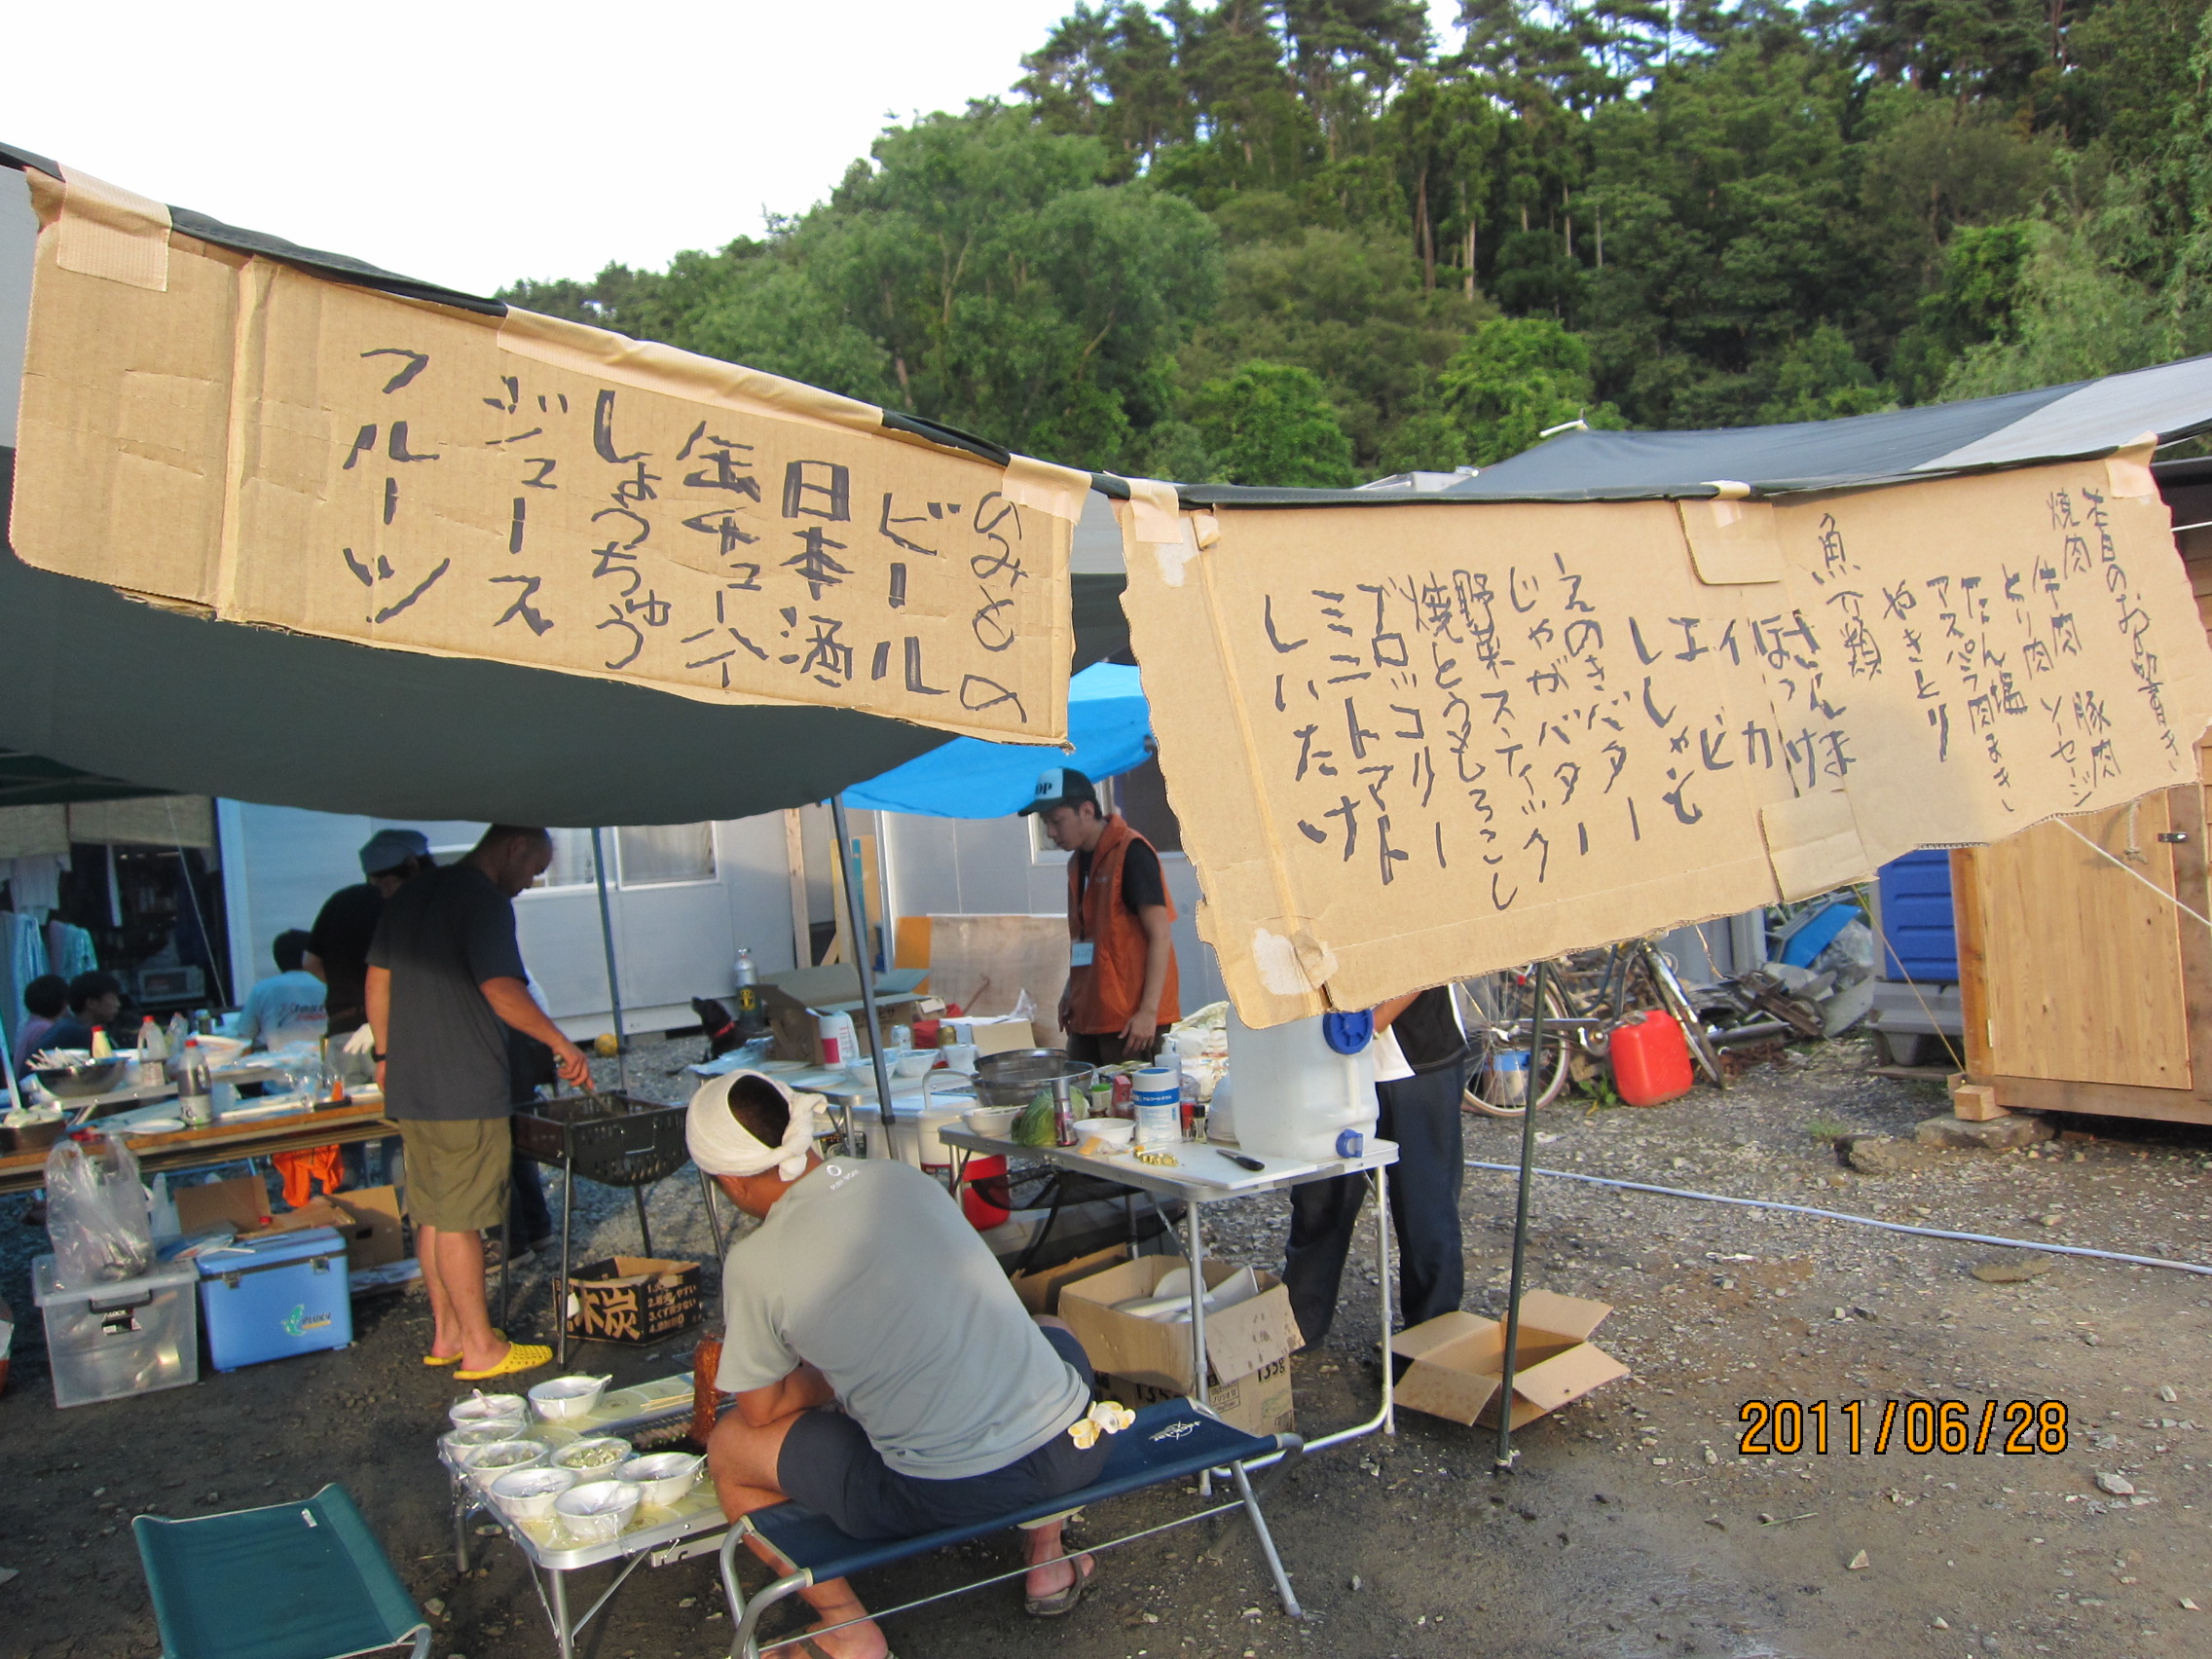 本日のお品書き
焼肉
牛肉 豚肉
とり肉 ソーセージ
たん塩
アスパラ肉まき
やきとり
魚介類
ほっけ
イカ
エビ
ししゃも
えのきバター
じゃがバター
野菜スティック
焼とうもろこし
ブロッコリー
ミニトマト
しいたけ
のみもの
ビール
日本酒
缶チューハイ
しょうちゅう
ジュース
フルーツ
木炭
135g
2011/06/28